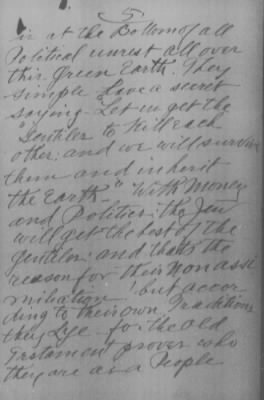 5
is at the Bottom of all
Political unrest all over
this green Earth. They
simple have a secret
saying. Let us get the
"Gentiles to Kill each
other. and we will survive
them and inherit
the Earth-" With Money
and Politics; the Jew
will get the best of the
Gentiles; and that's the
reason for their non assi
milation! but accor
ding to their own Traditions
they Lye for the Old
Testament proves who
they are as a People